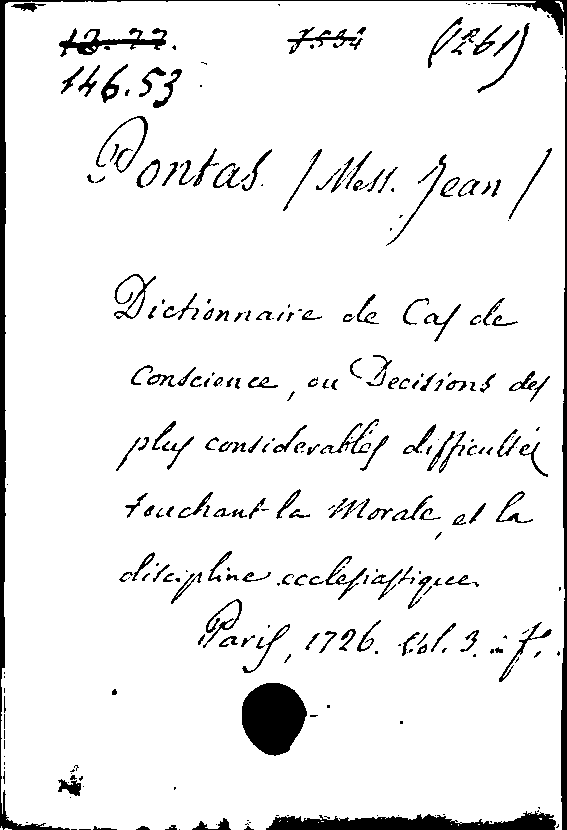 13.77. 7532 (1261)
146.53
Pontas. / Mess. Jean /
Dictionnaire de Cas de
conscience, ou Decisions des
plus considerables difficultés
touchant la Morale, et la
discipline ecclesiastique.
Paris, 1726. Vol. 3. in f°.